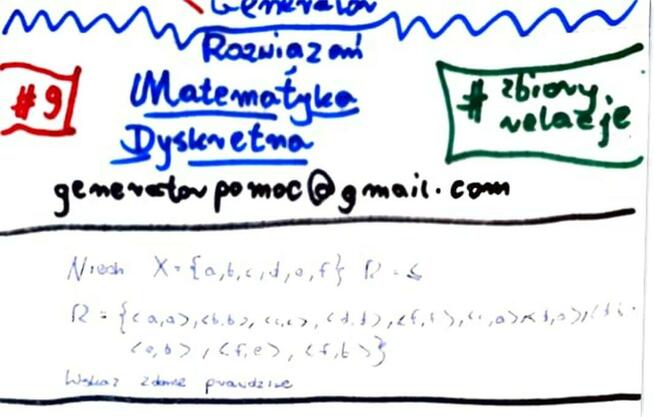 Generator
Rozwiązań
#9
Matematyka
Dyskretna
# zbiory,
relacje
generatorpomoc@gmail.com
Niech X = {a,b,c,d,e,f} R = ≤
R = {<a,a>,<b,b>, <c,c>, <d,d>,
<e,b>, <f,e>, <f,b>}
Wskaż zdanie prawdziwe